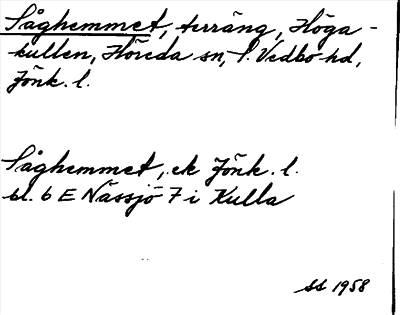 Såghemmet, terräng, Höga-
kullen, Höreda sn, S. Vedbo hd,
Jönk. l.
Såghemmet, ek Jönk. l.
bl. 6 E Nässjö 7 i Kulla
SS 1958